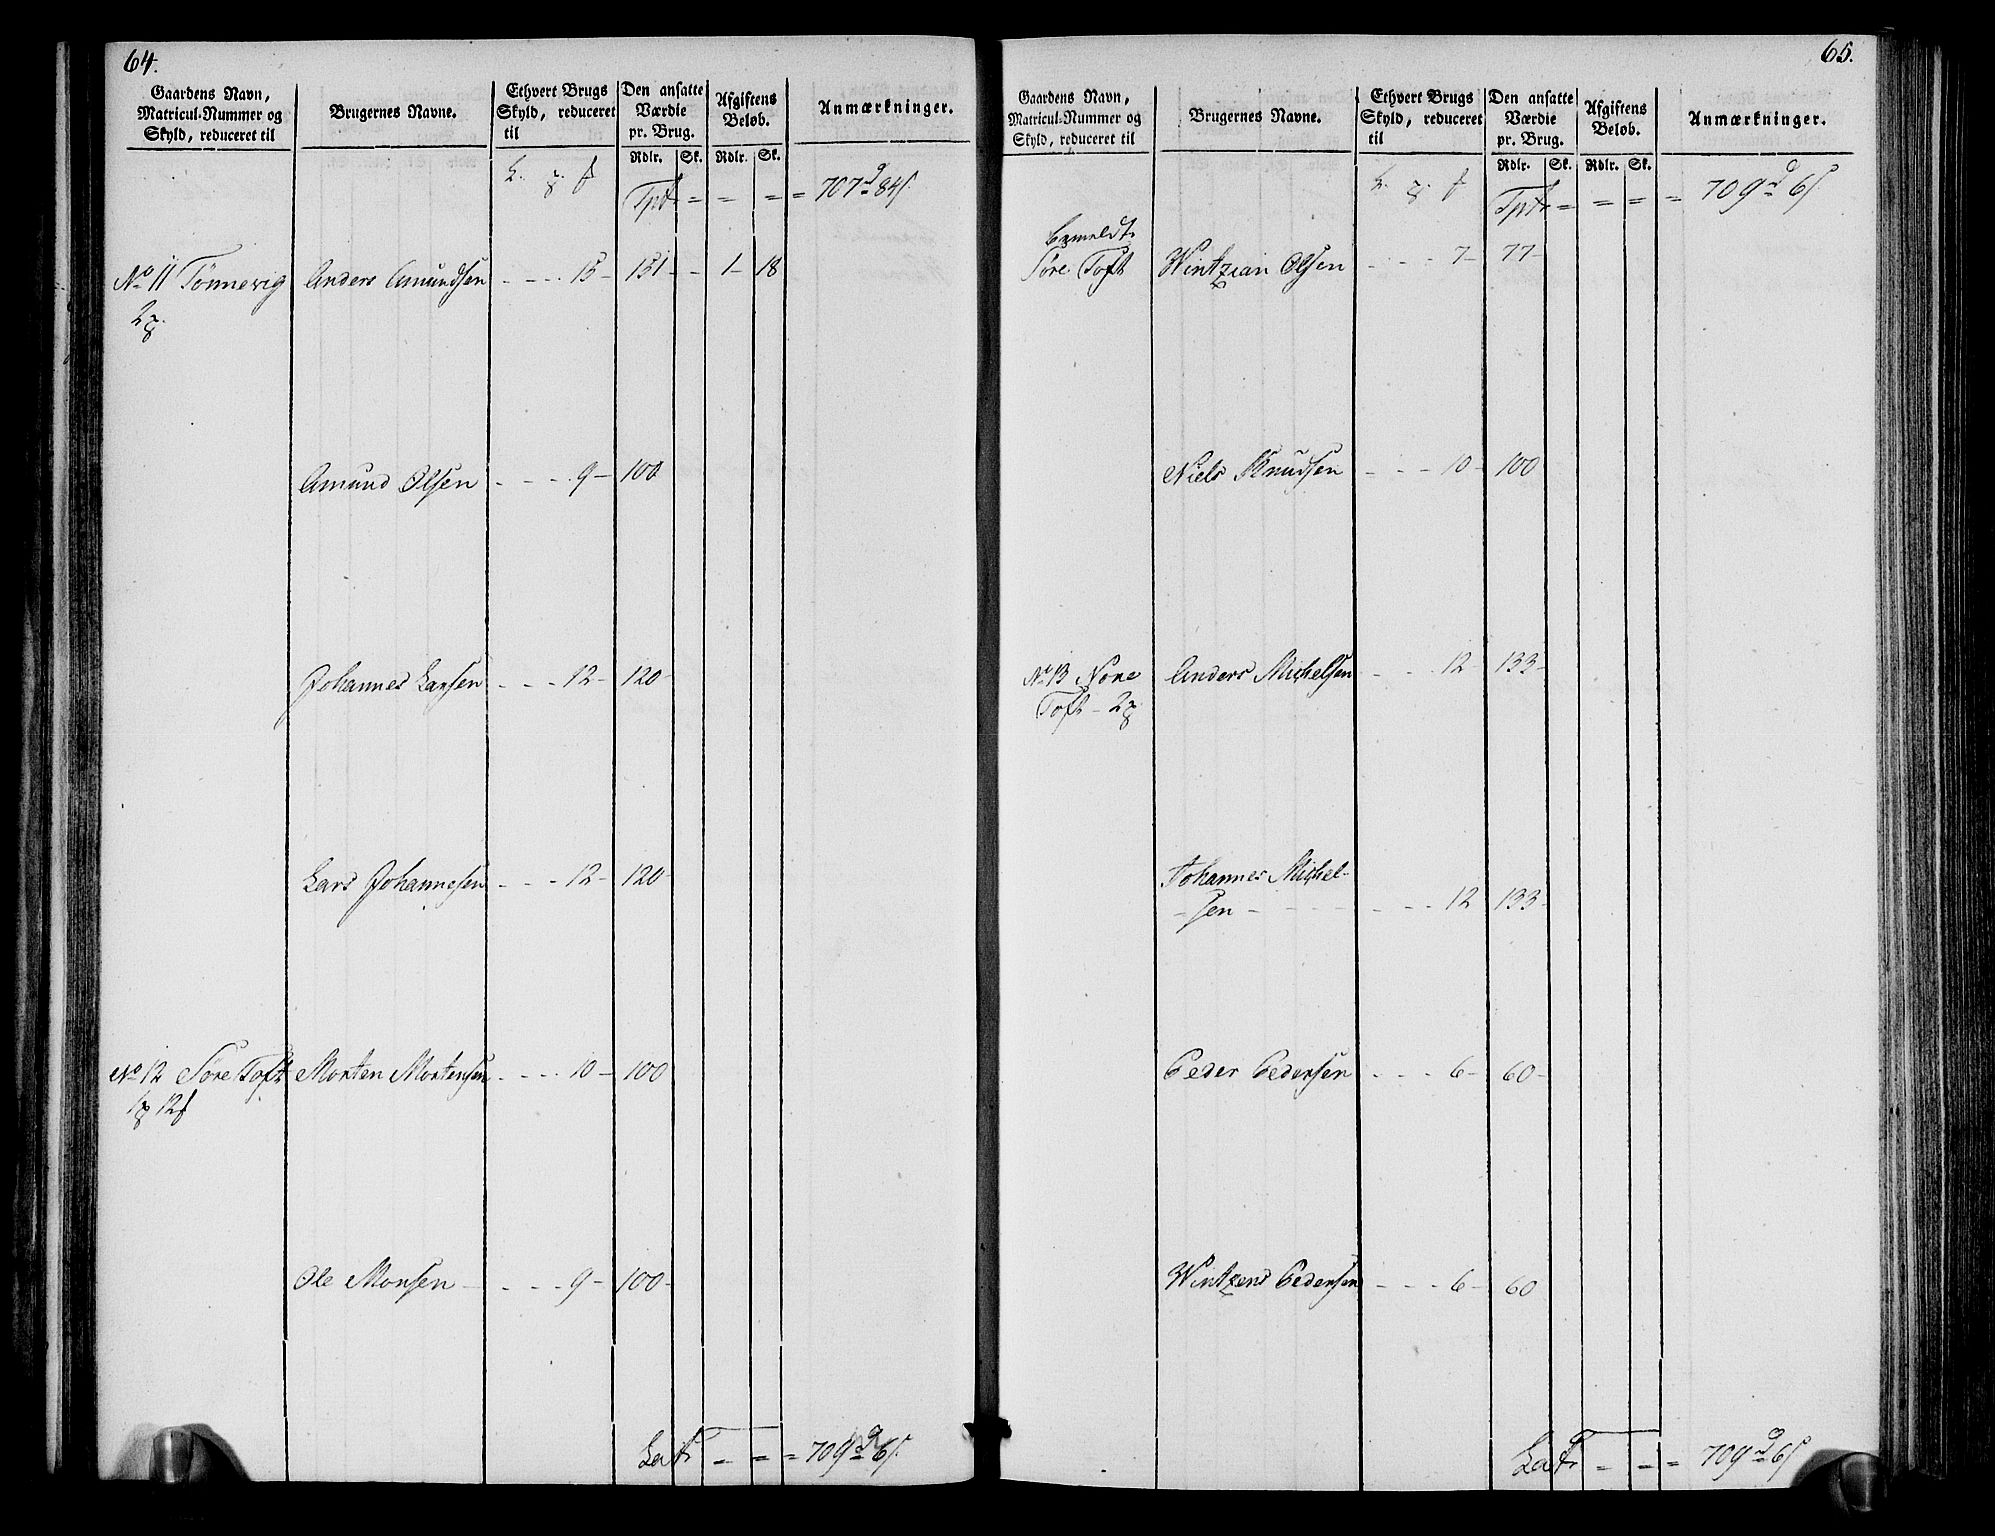 64.
Gaardens Navn, Matricul-Nummer og Skyld, reduceret til
Brugernes Navne.
Ethvert Brugs Skyld, reduceret til
Den ansatte Værdie pr. Brug.
Afgiftens Beløb.
Anmærkninger.
Rdlr. Sk. Rdlr. Sk.
Tpt. = = = = 707 84
No 11 Tønnevig Anders Amundsen - - - 15 - 131 - - 1 - 18
2
Amund Olsen - - - 9 - 100
Johannes Larsen - - - 12 - 120 -
Lars Johannesen - - - 12 - 120 -
No 12 Søre Toft Morten Mortensen - - - 10 - 100
1 12
Ole Monsen - - - - 9 - 100 -
Lat. = = = 709 6
65.
Gaardens Navn, Matricul-Nummer og Skyld, reduceret til
Brugernes Navne.
Ethvert Brugs Skyld, reduceret til
Den ansatte Værdie pr. Brug.
Afgiftens Beløb.
Anmærkninger.
Rdlr. Sk. Rdlr. Sk.
Tpt. = = = = 709 6
bemeldte
Søre Toft Wintzian Olsen - - - 7 - 77 -
Niels Knudsen - - - 10 - 100
No 13 Nore Anders Michelsen - - - 12 - 133 -
Toft - 2
Johannes Michel-
- sen - - - - - - 12 133 -
Peder Pedersen - - - 6 - 60 -
Wintzens Pedersen - - - 6 - 60
Lat. = = = 709 6